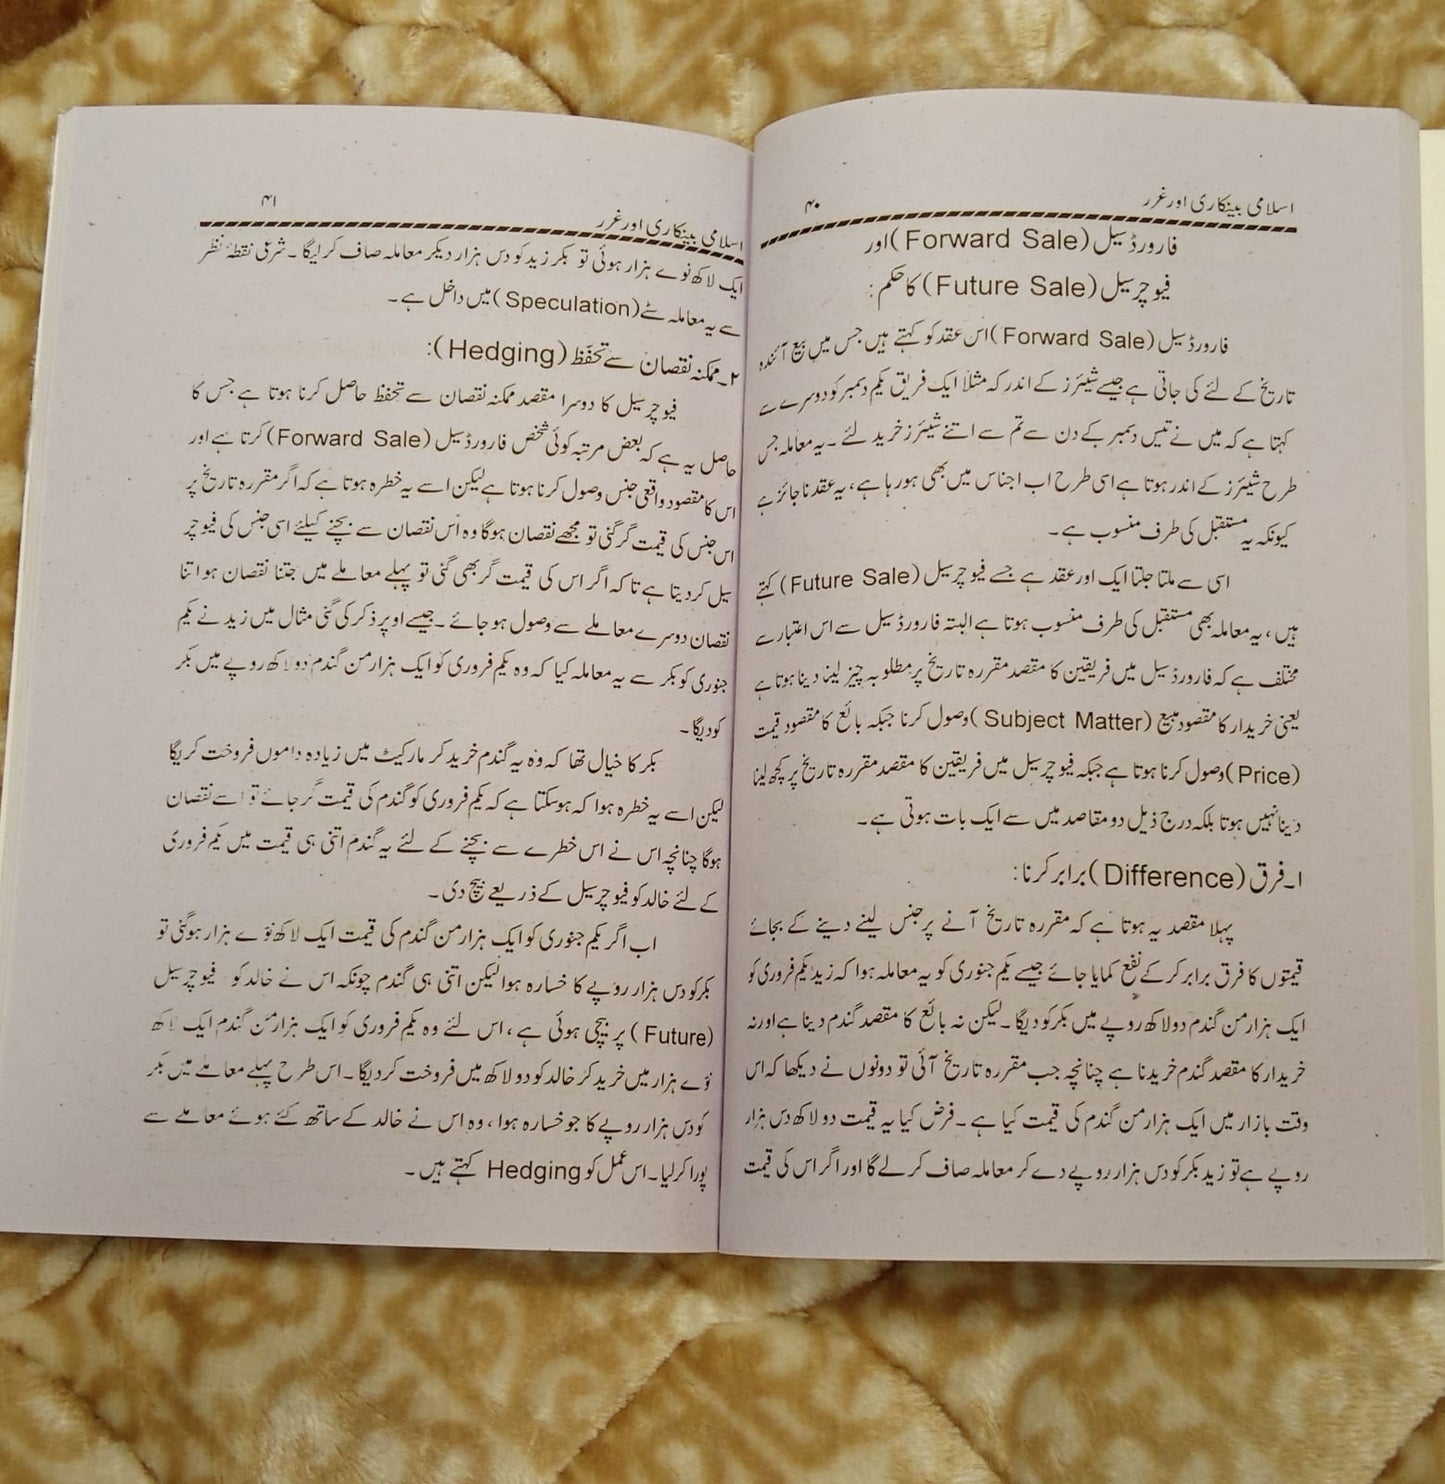 اسلامی بینکاری اور غرر
۴۰
فارورڈ سیل (Forward Sale) اور
فیوچر سیل (Future Sale) کا حکم:
فارورڈ سیل (Forward Sale) اس عقد کو کہتے ہیں جس میں بیع آئندہ
تاریخ کے لئے کی جاتی ہے جیسے شیئرز کے اندر کہ مثلاً ایک فریق یکم دسمبر کو دوسرے سے
کہتا ہے کہ میں نے تیس دسمبر کے دن سے تم سے اتنے شیئرز خرید لئے۔ یہ معاملہ جس
طرح شیئرز کے اندر ہوتا ہے اسی طرح اب اجناس میں بھی ہو رہا ہے، یہ عقد ناجائز ہے
کیونکہ یہ مستقبل کی طرف منسوب ہے۔
اسی سے ملتا جلتا ایک اور عقد ہے جسے فیوچر سیل (Future Sale) کہتے
ہیں، یہ معاملہ بھی مستقبل کی طرف منسوب ہوتا ہے البتہ فارورڈ سیل سے اس اعتبار سے
مختلف ہے کہ فارورڈ سیل میں فریقین کا مقصد مقررہ تاریخ پر مطلوبہ چیز لینا دینا ہوتا ہے
یعنی خریدار کا مقصود مبیع (Subject Matter) وصول کرنا جبکہ بائع کا مقصود قیمت
(Price) وصول کرنا ہوتا ہے جبکہ فیوچر سیل میں فریقین کا مقصد مقررہ تاریخ پر کچھ لینا
دینا نہیں ہوتا بلکہ درج ذیل دو مقاصد میں سے ایک بات ہوتی ہے۔
۱۔ فرق (Difference) برابر کرنا:
پہلا مقصد یہ ہوتا ہے کہ مقررہ تاریخ آنے پر جنس لینے دینے کے بجائے
قیمتوں کا فرق برابر کر کے نفع کمایا جائے جیسے یکم جنوری کو یہ معاملہ ہوا کہ زید یکم فروری کو
ایک ہزار من گندم دو لاکھ روپے میں بکر کو دیگا۔ لیکن نہ بائع کا مقصد گندم دینا ہے اور نہ
خریدار کا مقصد گندم خریدنا ہے چنانچہ جب مقررہ تاریخ آئی تو دونوں نے دیکھا کہ اس
وقت بازار میں ایک ہزار من گندم کی قیمت کیا ہے۔ فرض کیا یہ قیمت دو لاکھ دس ہزار
روپے ہے تو زید بکر کو دس ہزار روپے دے کر معاملہ صاف کر لے گا اور اگر اس کی قیمت
اسلامی بینکاری اور غرر
۴۱
ایک لاکھ نوے ہزار ہوئی تو بکر زید کو دس ہزار دیکر معاملہ صاف کر لیگا۔ شرعی نقطۂ نظر
سے یہ معاملہ سٹے (Speculation) میں داخل ہے۔
۲۔ ممکنہ نقصان سے تحفّظ (Hedging):
فیوچر سیل کا دوسرا مقصد ممکنہ نقصان سے تحفظ حاصل کرنا ہوتا ہے جس کا
حاصل یہ ہے کہ بعض مرتبہ کوئی شخص فارورڈ سیل (Forward Sale) کرتا ہے اور
اس کا مقصود واقعی جنس وصول کرنا ہوتا ہے لیکن اسے یہ خطرہ ہوتا ہے کہ اگر مقررہ تاریخ پر
اس جنس کی قیمت گر گئی تو مجھے نقصان ہوگا وہ اس نقصان سے بچنے کیلئے اسی جنس کی فیوچر
سیل کر دیتا ہے تا کہ اگر اس کی قیمت گر بھی گئی تو پہلے معاملے میں جتنا نقصان ہوا اتنا
نقصان دوسرے معاملے سے وصول ہو جائے۔ جیسے اوپر ذکر کی گئی مثال میں زید نے یکم
جنوری کو بکر سے یہ معاملہ کیا کہ وہ یکم فروری کو ایک ہزار من گندم دو لاکھ روپے میں بکر
کو دیگا۔
بکر کا خیال تھا کہ وہ یہ گندم خرید کر مارکیٹ میں زیادہ داموں فروخت کریگا
لیکن اسے یہ خطرہ ہوا کہ ہوسکتا ہے کہ یکم فروری کو گندم کی قیمت گر جائے تو اسے نقصان
ہوگا چنانچہ اس نے اس خطرے سے بچنے کے لئے یہ گندم اتنی ہی قیمت میں یکم فروری
کے لئے خالد کو فیوچر سیل کے ذریعے بیچ دی۔
اب اگر یکم جنوری کو ایک ہزار من گندم کی قیمت ایک لاکھ نوّے ہزار ہو گئی تو
بکر کو دس ہزار روپے کا خسارہ ہوا لیکن اتنی ہی گندم چونکہ اس نے خالد کو فیوچر سیل
(Future) پر بیچی ہوئی ہے، اس لئے وہ یکم فروری کو ایک ہزار من گندم ایک لاکھ
نوّے ہزار میں خرید کر خالد کو دو لاکھ میں فروخت کر دیگا۔ اس طرح پہلے معاملے میں بکر
کو دس ہزار روپے کا جو خسارہ ہوا، وہ اس نے خالد کے ساتھ کئے ہوئے معاملے سے
پورا کر لیا۔ اس عمل کو Hedging کہتے ہیں۔